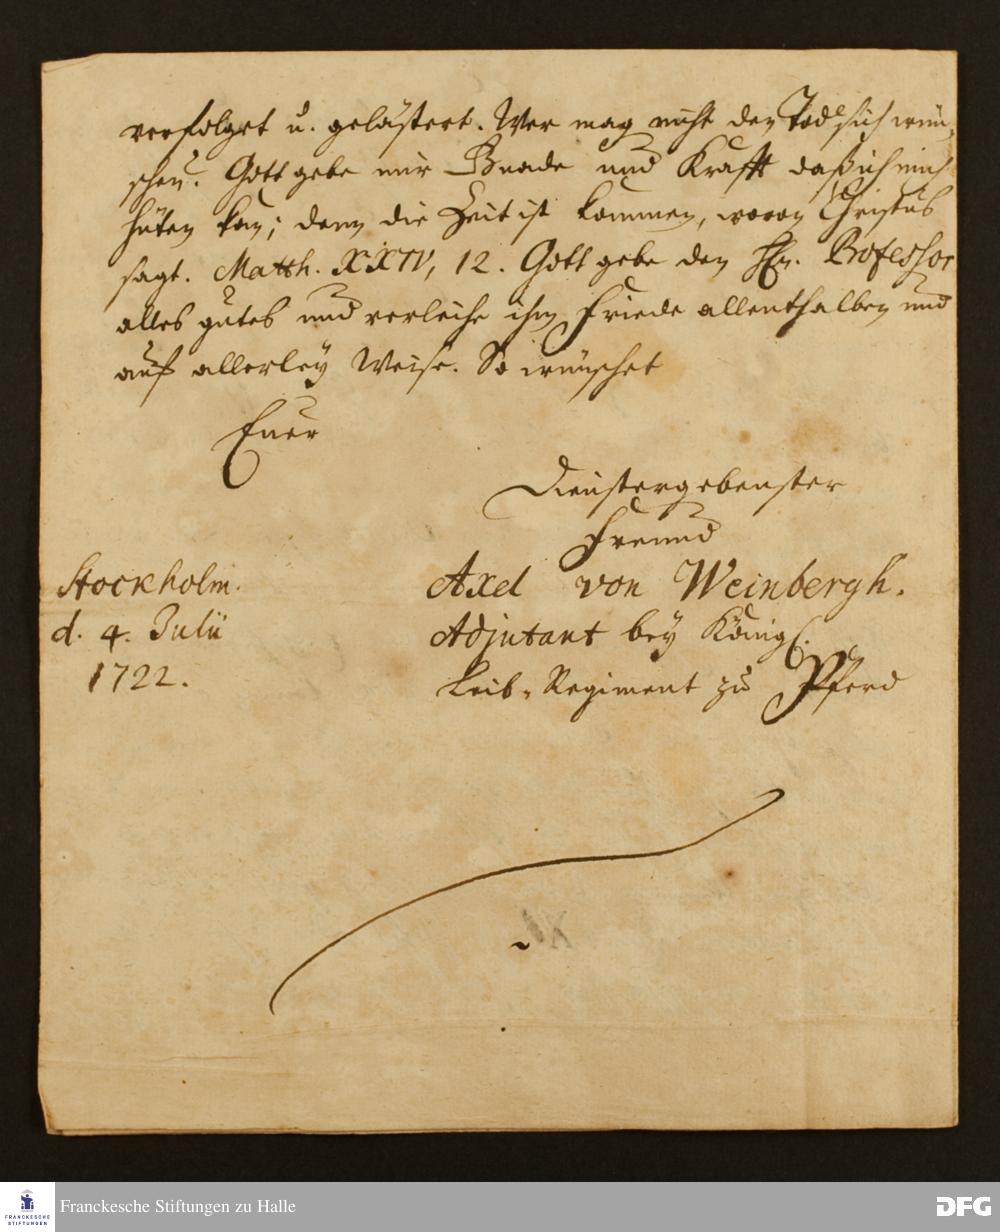 verfolget u. gelästert. Wer mag nicht den Tod sich wün-
schen. Gott gebe mir Gnade und Krafft daß ich mich
hüten kan; denn die Zeit ist kommen, wovon Christus
sagt. Matth. XXIV, 12. Gott gebe den Hn. Professor
alles gutes und verleihe ihm Friede allenthalben und
auf allerley Weise. So wünschet
Euer
Dienstergebenster
Freund
Stockholm.
d. 4. Julii
1722.
Axel von Weinbergh.
Adjutant bey Königl.
Leib-Regiment zu Pferd
FRANCKESCHE
STIFTUNGEN
Franckesche Stiftungen zu Halle
DFG